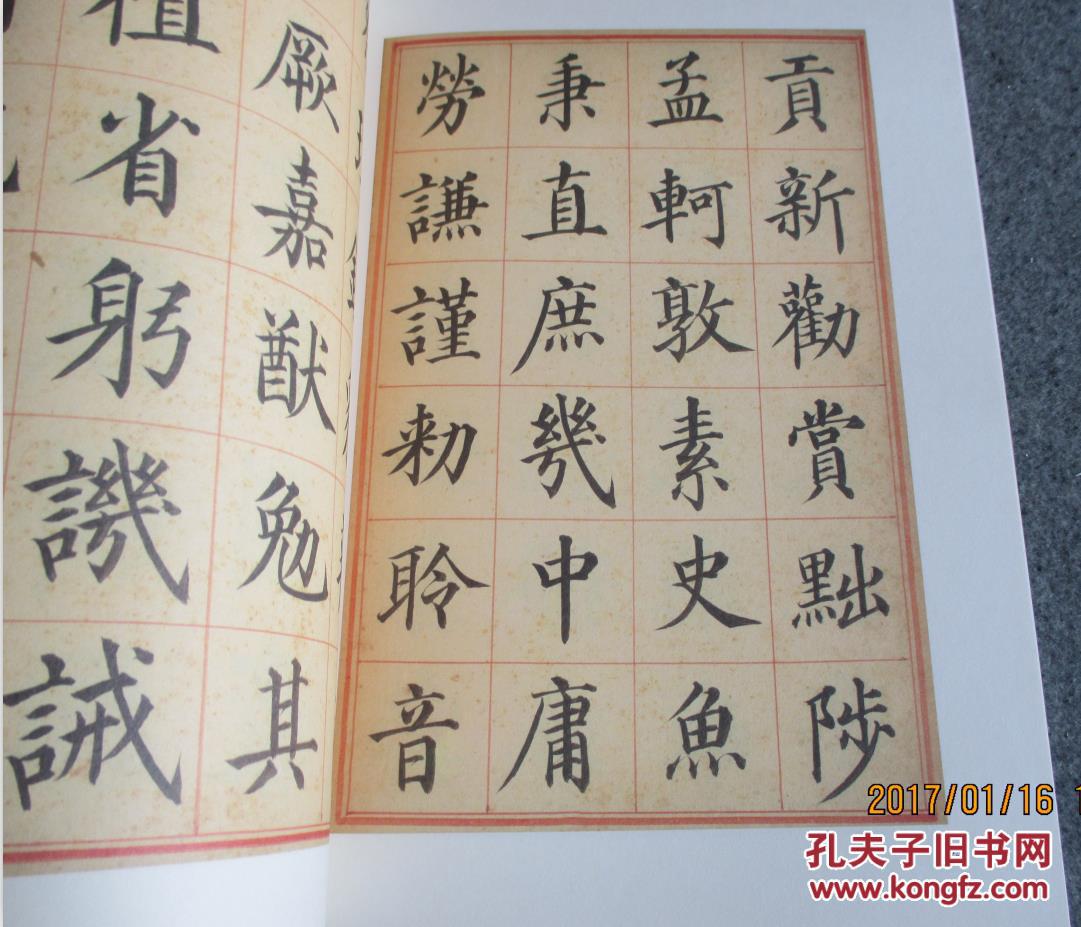 貢新勸賞黜陟
孟軻敦素史魚
秉直庶幾中庸
勞謙謹勅聆音
厥嘉猷勉其
植省躬譏誡
2017/01/16 1
孔夫子旧书网
www.kongfz.com